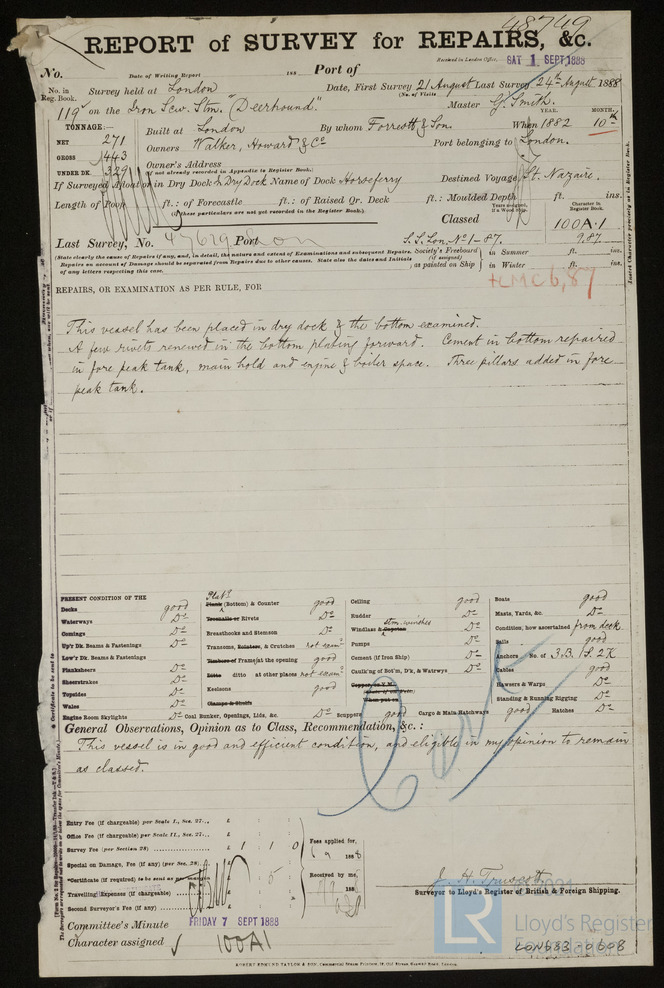 48749
REPORT of SURVEY for REPAIRS, &c.
Received in London Office, SAT 1 SEPT 1888
No. Date of Writing Report 188 Port of
No. in Reg. Book. Survey held at London Date, First Survey 21 August Last Survey 24th August 1888
(No. of Visits
119 on the Iron Scw. Stm. "Deerhound". Master G. Smith.
TONNAGE:— YEAR. MONTH.
NET 271 Built at London By whom Forrestt & Son. When 1882 10th
GROSS 443 Owners Walker, Howard & Co Port belonging to London.
UNDER DK. 329 Owner's Address
(if not already recorded in Appendix to Register Book.)
If Surveyed Afloat or in Dry Dock In Dry Dock Name of Dock Horseferry Destined Voyage St. Nazaire.
Length of Poop ft.: of Forecastle ft.: of Raised Qr. Deck ft.: Moulded Depth ft. ins.
(If these particulars are not yet recorded in the Register Book.)
Years assigned, if a Wood Ship. Character in Register Book.
Classed 100A.1
Last Survey, No. 47619 Port Lon S.S. Lon. No 1-87. 9,87
(State clearly the cause of Repairs, if any, and, in detail, the nature and extent of Examinations and subsequent Repairs.
Repairs on account of Damage should be separated from Repairs due to other causes. State also the dates and Initials
of any letters respecting this case.
Society's Freeboard (if assigned) as painted on Ship in Summer ft. ins.
in Winter ft. ins.
+LMC 6,87
REPAIRS, OR EXAMINATION AS PER RULE, FOR
This vessel has been placed in dry dock & the bottom examined.
A few rivets renewed in the bottom plating forward. Cement in bottom repaired
in fore peak tank, main hold and engine & boiler space. Three pillars added in fore
peak tank.
PRESENT CONDITION OF THE
Decks good
Waterways Do
Comings Do
Up'r Dk. Beams & Fastenings Do
Low'r Dk. Beams & Fastenings
Planksheers Do
Sheerstrakes Do
Topsides Do
Wales Do
Engine Room Skylights Do
Plat'g
Plank (Bottom) & Counter good
Treenails or Rivets Do
Breasthooks and Stemson Do
Transoms, Knightees, & Crutches not exam'd
Timbers or Frames at the opening good
Ditto ditto at other places not exam'd
Keelsons good
Clamps & Shelfs
Coal Bunker, Openings, Lids, &c. Do
Ceiling good
Rudder Do
stm. winches
Windlass & Capstan Do
Pumps Do
Cement (if Iron Ship) Do
Caulk'ng of Bot'm, D'k, & Watrwys Do
Scuppers good Cargo & Main Hatchways good
Boats good
Masts, Yards, &c. Do
Condition, how ascertained from deck
Sails good
Anchors No. of 3.B. 1.S. 2K
Cables good
Hawsers & Warps Do
Standing & Running Rigging Do
Hatches Do
General Observations, Opinion as to Class, Recommendation, &c.:
This vessel is in good and efficient condition, and eligible in my opinion to remain
as classed.
Cert
Entry Fee (if chargeable) per Scale I., Sec. 27... £ : :
Office Fee (if chargeable) per Scale II., Sec. 27... £ : :
Survey Fee (per Section 28) £ 1 : 1 : 0
Special on Damage, Fee (if any) (per Sec. 28). £ : :
*Certificate (if required) to be sent as per margin £ : 5 :
Travelling Expenses (if chargeable) £ : :
Second Surveyor's Fee (if any) £ : :
Fees applied for,
188
Received by me,
188
J. H. Truscott
Surveyor to Lloyd's Register of British & Foreign Shipping.
Committee's Minute FRIDAY 7 SEPT 1888
Character assigned 100A1
LR Lloyd's Register Foundation
LON683-0608
ROBERT EDMUND TAYLOR & SON, Commercial Steam Printers, 19, Old Street, Goswell Road, London.